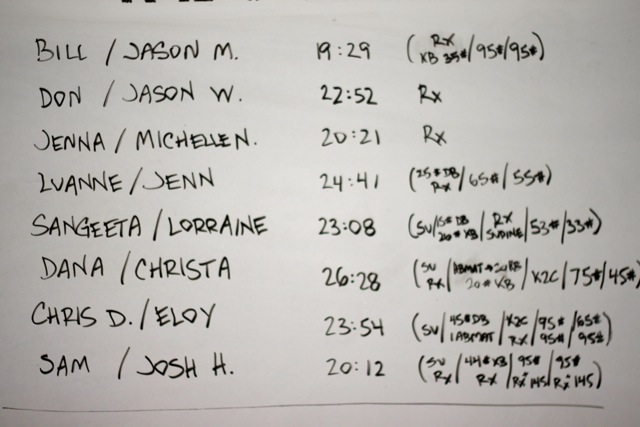 BILL / JASON M. 19:29 (Rx KB 35# / 95# / 95#)
DON / JASON W. 22:52 Rx
JENNA / MICHELLE N. 20:21 Rx
LUANNE / JENN 24:41 (25# DB Rx / 65# / 55#)
SANGEETA / LORRAINE 23:08 (SU / 15# DB 20# KB / Rx SUPINE / 53# / 33#)
DANA / CHRISTA 26:28 (SU Rx / ABMAT 20# KB / K2C / 75# / 45#
CHRIS D. / ELOY 23:54 (SU / 45# DB 1 ABMAT / K2C Rx / 95# 95# / 65# 95#)
SAM / JOSH H. 20:12 (SU Rx / 44# KB Rx / 95# Rx+ 145 / 95# Rx+ 145)